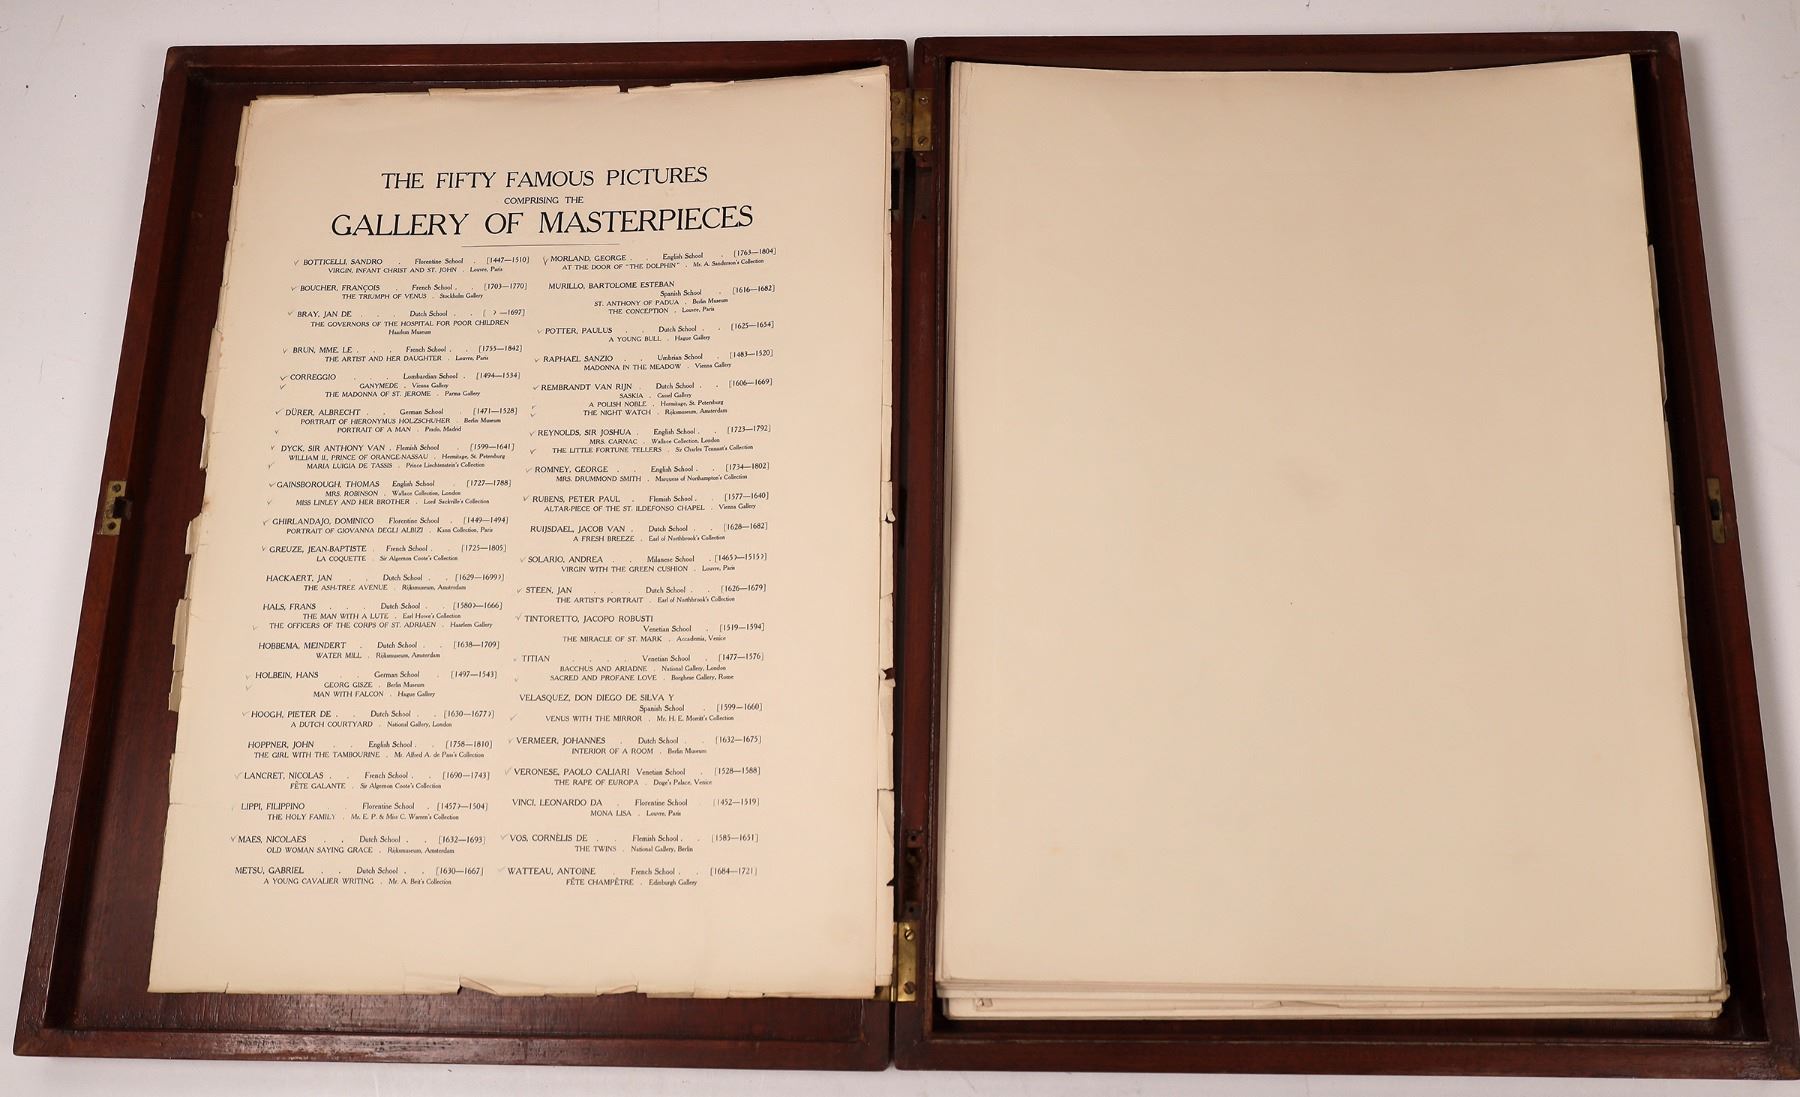 THE FIFTY FAMOUS PICTURES
COMPRISING THE
GALLERY OF MASTERPIECES
BOTTICELLI, SANDRO . Florentine School . [1447—1510]
VIRGIN, INFANT CHRIST AND ST. JOHN . Louvre, Paris
BOUCHER, FRANÇOIS . French School . . [1703—1770]
THE TRIUMPH OF VENUS . Stockholm Gallery
BRAY, JAN DE . . . Dutch School . . [ ? —1697]
THE GOVERNORS OF THE HOSPITAL FOR POOR CHILDREN
Haarlem Museum
BRUN, MME. LE . . . French School . . [1755—1842]
THE ARTIST AND HER DAUGHTER . Louvre, Paris
CORREGGIO . . . Lombardian School . [1494—1534]
GANYMEDE . Vienna Gallery
THE MADONNA OF ST. JEROME . Parma Gallery
DÜRER, ALBRECHT . . German School . [1471—1528]
PORTRAIT OF HIERONYMUS HOLZSCHUHER . Berlin Museum
PORTRAIT OF A MAN . Prado, Madrid
DYCK, SIR ANTHONY VAN . Flemish School . [1599—1641]
WILLIAM II, PRINCE OF ORANGE-NASSAU . Hermitage, St. Petersburg
MARIA LUIGIA DE TASSIS . Prince Liechtenstein's Collection
GAINSBOROUGH, THOMAS English School . [1727—1788]
MRS. ROBINSON . Wallace Collection, London
MISS LINLEY AND HER BROTHER . Lord Sackville's Collection
GHIRLANDAJO, DOMINICO Florentine School . [1449—1494]
PORTRAIT OF GIOVANNA DEGLI ALBIZI . Kann Collection, Paris
GREUZE, JEAN-BAPTISTE . French School . . [1725—1805]
LA COQUETTE . Sir Algernon Coote's Collection
HACKAERT, JAN . . Dutch School . . [1629—1699?]
THE ASH-TREE AVENUE . Rijksmuseum, Amsterdam
HALS, FRANS . . . Dutch School . . [1580?—1666]
THE MAN WITH A LUTE . Earl Howe's Collection
THE OFFICERS OF THE CORPS OF ST. ADRIAEN . Haarlem Gallery
HOBBEMA, MEINDERT . Dutch School . . [1638—1709]
WATER MILL . Rijksmuseum, Amsterdam
HOLBEIN, HANS . . German School . [1497—1543]
GEORG GISZE . Berlin Museum
MAN WITH FALCON . Hague Gallery
HOOGH, PIETER DE . . Dutch School . . [1630—1677?]
A DUTCH COURTYARD . National Gallery, London
HOPPNER, JOHN . . English School . . [1758—1810]
THE GIRL WITH THE TAMBOURINE . Mr. Alfred A. de Pass's Collection
LANCRET, NICOLAS . . French School . . [1690—1743]
FÊTE GALANTE . Sir Algernon Coote's Collection
LIPPI, FILIPPINO . Florentine School . [1457?—1504]
THE HOLY FAMILY . Mr. E. P. & Miss C. Warren's Collection
MAES, NICOLAES . . Dutch School . . [1632—1693]
OLD WOMAN SAYING GRACE . Rijksmuseum, Amsterdam
METSU, GABRIEL . . Dutch School . . [1630—1667]
A YOUNG CAVALIER WRITING . Mr. A. Beit's Collection
MORLAND, GEORGE . . English School . [1763—1804]
AT THE DOOR OF "THE DOLPHIN" . Mr. A. Sanderson's Collection
MURILLO, BARTOLOME ESTEBAN
Spanish School . . [1616—1682]
ST. ANTHONY OF PADUA . Berlin Museum
THE CONCEPTION . Louvre, Paris
POTTER, PAULUS . . Dutch School . . [1625—1654]
A YOUNG BULL . Hague Gallery
RAPHAEL SANZIO . . Umbrian School . [1483—1520]
MADONNA IN THE MEADOW . Vienna Gallery
REMBRANDT VAN RIJN . Dutch School . . [1606—1669]
SASKIA . Cassel Gallery
A POLISH NOBLE . Hermitage, St. Petersburg
THE NIGHT WATCH . Rijksmuseum, Amsterdam
REYNOLDS, SIR JOSHUA . English School . . [1723—1792]
MRS. CARNAC . Wallace Collection, London
THE LITTLE FORTUNE TELLERS . Sir Charles Tennant's Collection
ROMNEY, GEORGE . . English School . . [1734—1802]
MRS. DRUMMOND SMITH . Marquess of Northampton's Collection
RUBENS, PETER PAUL . Flemish School . . [1577—1640]
ALTAR-PIECE OF THE ST. ILDEFONSO CHAPEL . Vienna Gallery
RUIJSDAEL, JACOB VAN . Dutch School . . [1628—1682]
A FRESH BREEZE . Earl of Northbrook's Collection
SOLARIO, ANDREA . . Milanese School . [1465?—1515?]
VIRGIN WITH THE GREEN CUSHION . Louvre, Paris
STEEN, JAN . . . Dutch School . . [1626—1679]
THE ARTIST'S PORTRAIT . Earl of Northbrook's Collection
TINTORETTO, JACOPO ROBUSTI
Venetian School . [1519—1594]
THE MIRACLE OF ST. MARK . Accademia, Venice
TITIAN . . . . Venetian School . [1477—1576]
BACCHUS AND ARIADNE . National Gallery, London
SACRED AND PROFANE LOVE . Borghese Gallery, Rome
VELASQUEZ, DON DIEGO DE SILVA Y
Spanish School . . [1599—1660]
VENUS WITH THE MIRROR . Mr. H. E. Morritt's Collection
VERMEER, JOHANNES . Dutch School . . [1632—1675]
INTERIOR OF A ROOM . Berlin Museum
VERONESE, PAOLO CALIARI Venetian School . [1528—1588]
THE RAPE OF EUROPA . Doge's Palace, Venice
VINCI, LEONARDO DA . Florentine School . [1452—1519]
MONA LISA . Louvre, Paris
VOS, CORNÉLIS DE . . Flemish School . . [1585—1651]
THE TWINS . National Gallery, Berlin
WATTEAU, ANTOINE . French School . . [1684—1721]
FÊTE CHAMPÊTRE . Edinburgh Gallery